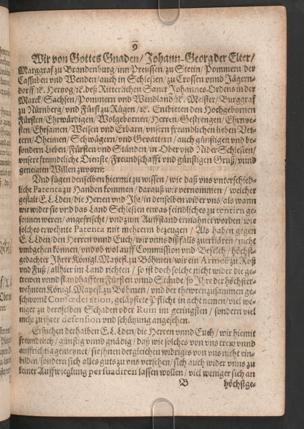 9
Wir von Gottes Gnaden / Johann-Georg der Elter /
Marggraf zu Brandenburg / inn Preussen / zu Stetin / Pommern der
Cassuben und Wenden / auch in Schlesien / zu Crossen unnd Jägern-
dorff ꝛc. Hertzog ꝛc. deß Ritterlichen Sanct Johannes-Ordens in der
Marck / Sachsen / Pommern und Wendland ꝛc. Meister / Burggraf
zu Nürnberg / und Fürst zu Rügen / ꝛc. Entbieten den Hochgebornen
Fürsten / Ehrwürdigen / Wolgebornen / Herren / Gestrengen / Ehrnve-
sten / Ehrsamen / Weisen und Erbarn / unsern freundlichen lieben Vet-
tern / Oheimen / Schwägern / und Gevattern / auch günstigen und be-
sondern Lieben / Fürsten und Ständen / in Ober und Nider Schlesien /
unsere freundliche Dienste / Freundschafft und günstigen Gruß / unnd
geneigten Willen zuvorn:
Und fügen denselben hiermit zu wissen / wie daß uns unterschied-
liche Patenta zu Handen kommen / darauß wir vernommen / welcher
gestalt E. L. L den / die Herren und Ihr / in denselben wider uns / als wann
wir wider sie und das Land Schlesien etwas feindliches zu tentiren ge-
sonnen weren / auffgefrischt / und zum Auffstand ermahnet worden / wie
solches erwehnte Patenta mit mehrerm bezeugen / Als haben gegen
E. L. L den / den Herren und Euch / wir uns dißfalls zu erklären / nicht
umbgehen können / und ob wol auff Commission und Befelch / höchst-
gedachter Ihrer Königl. Mayest. zu Böhmen / wir ein Armee zu Roß
und Fuß / allhier im Land richten / so ist doch solche nicht wider die ge-
treuen und standhafften Fürsten unnd Stände / so Ihr der höchster-
wehnten Königl. Mayest. zu Böhmen / und der theuren zusammen ge-
schwornen Confœderation, gelübpflicht in acht nemen / viel we-
niger zu derselben Schaden oder Ruin im geringsten / sondern viel
mehr zu ihrer defension und schützung angesehen.
Ersuchen derhalben E. L. L den / die Herren unnd Euch / wir hiemit
freundlich / günstig unnd gnädig / daß wie solches von uns treu unnd
auffrichtig gemeynet / sie ihnen dergleichen widriges von uns nicht ein-
bilden / sondern sich alles guts zu uns versehen / sich auch wider uns zu
keiner Auffwieglung persuadieren lassen wollen / viel weniger sich an
B höchstge-